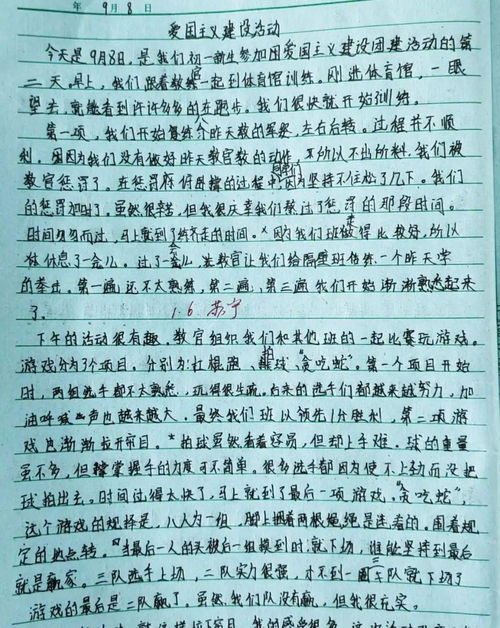 年 9月 8日
爱国主义建设活动
今天是9月8日,是我们初一新生参加团爱国主义建设团建活动的第
二天。早上,我们跟着教官一起到体育馆训练。刚进体育馆,一眼
望去,就能看到许许多多的在跑步。我们很快就开始训练。
第一项,我们开始复练今昨天教的军姿,左右右转。过程并不顺
利。因为我们没有做好昨天教官教的动作,所以不出所料,我们被
教官惩罚了。在惩罚的过程中,因为坚持不住松了几下。我们
的惩罚加时了。虽然很辛苦,但我很庆幸我们熬过了惩罚的那段时间。
时间匆匆而过,马上就到了齐走的时间。因为我们班做得比较好,所以
休息了一会儿。过了一会儿,教官让我们给隔壁班传练一个昨天学
的拳法。第一遍还不太熟练,第二遍、第三遍我们开始渐渐熟悉起来
了。 1.6 苏宁
下午的活动很有趣。教官组织我们和其他班的一起比赛玩游戏。
游戏分为3个项目。分别为:扛棍跑、拍球、“贪吃蛇”。第一个项目开始
时,两组选手都不太熟悉,玩得很生疏。后来的选手们都越来越努力,加
油呼喊声也越来越大。最终我们班以领先1分胜利,第二项游
戏也渐渐拉开帘目。拍球虽然看着容易,但却上手难。球的重量
虽不多,但掌握手的力度可不简单。很多选手都因为使不上劲而没把
球拍出去。时间过得太快了,马上就到了最后一项游戏,“贪吃蛇”,
这个游戏的规择是,八人为一组,脚上拥着两根绳绳是连着的。围着规
定的地点转。当最后一人的天被后一组摸到时就下场,谁能坚持到最后
就是赢家。三队选手上场,二队实力很强,才不到一圈三队就下场了
游戏的最后是二队赢了。虽然我们队没有赢,但我很充实。